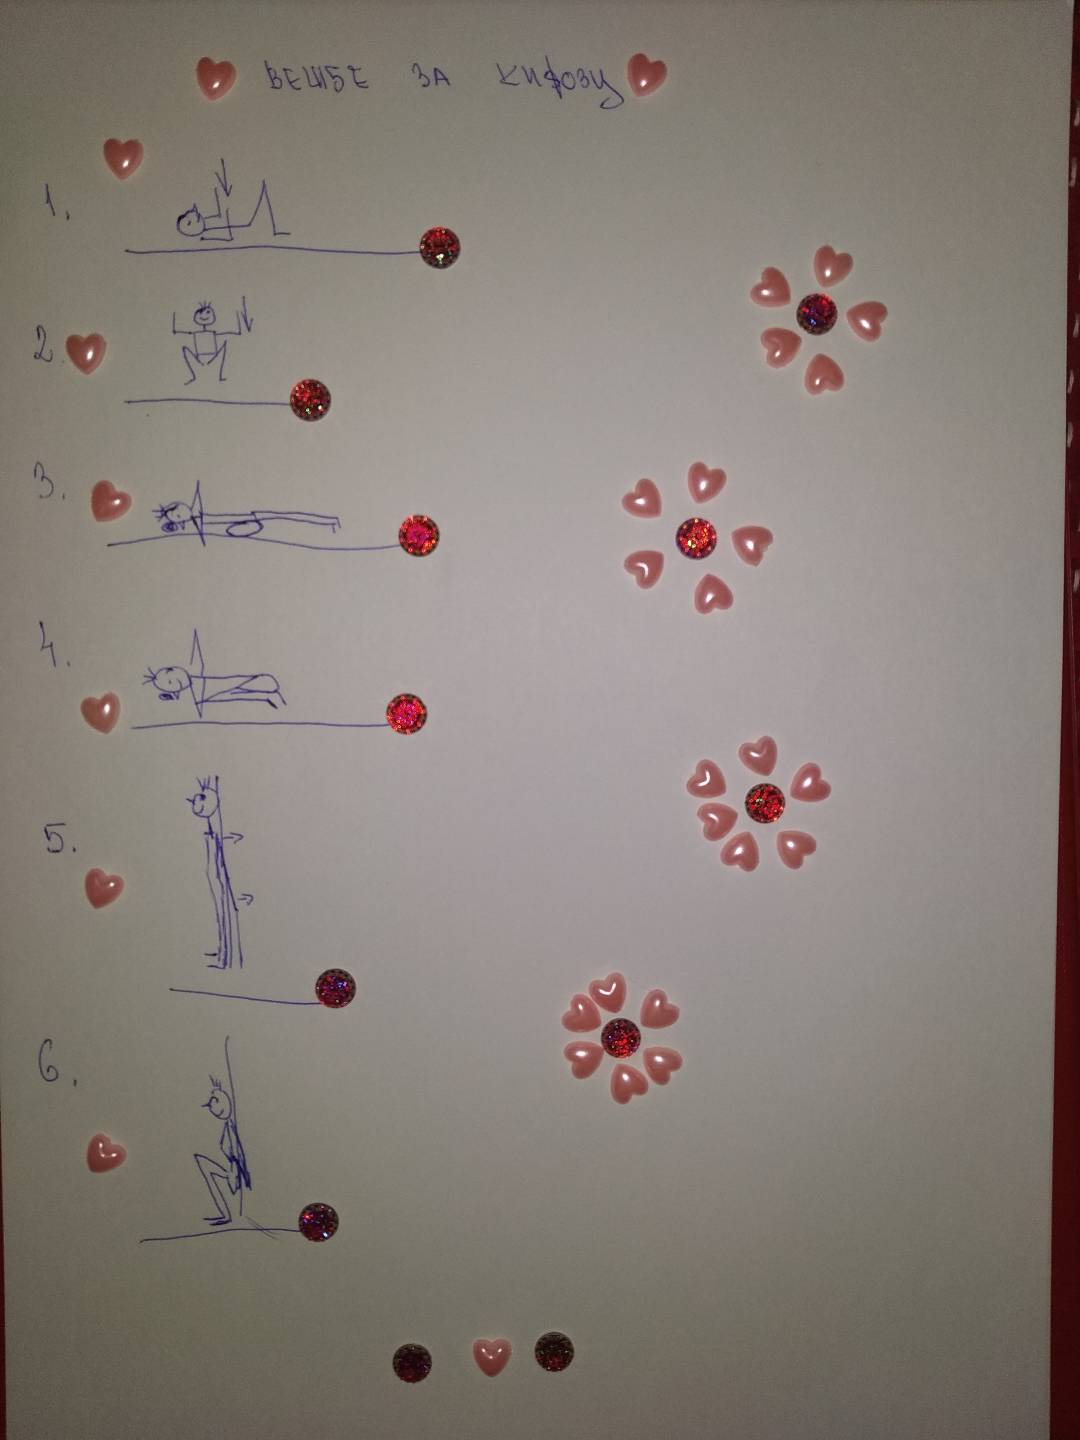 ВЕЖБЕ ЗА КИФОЗУ
1.
2.
3.
4.
5.
6.